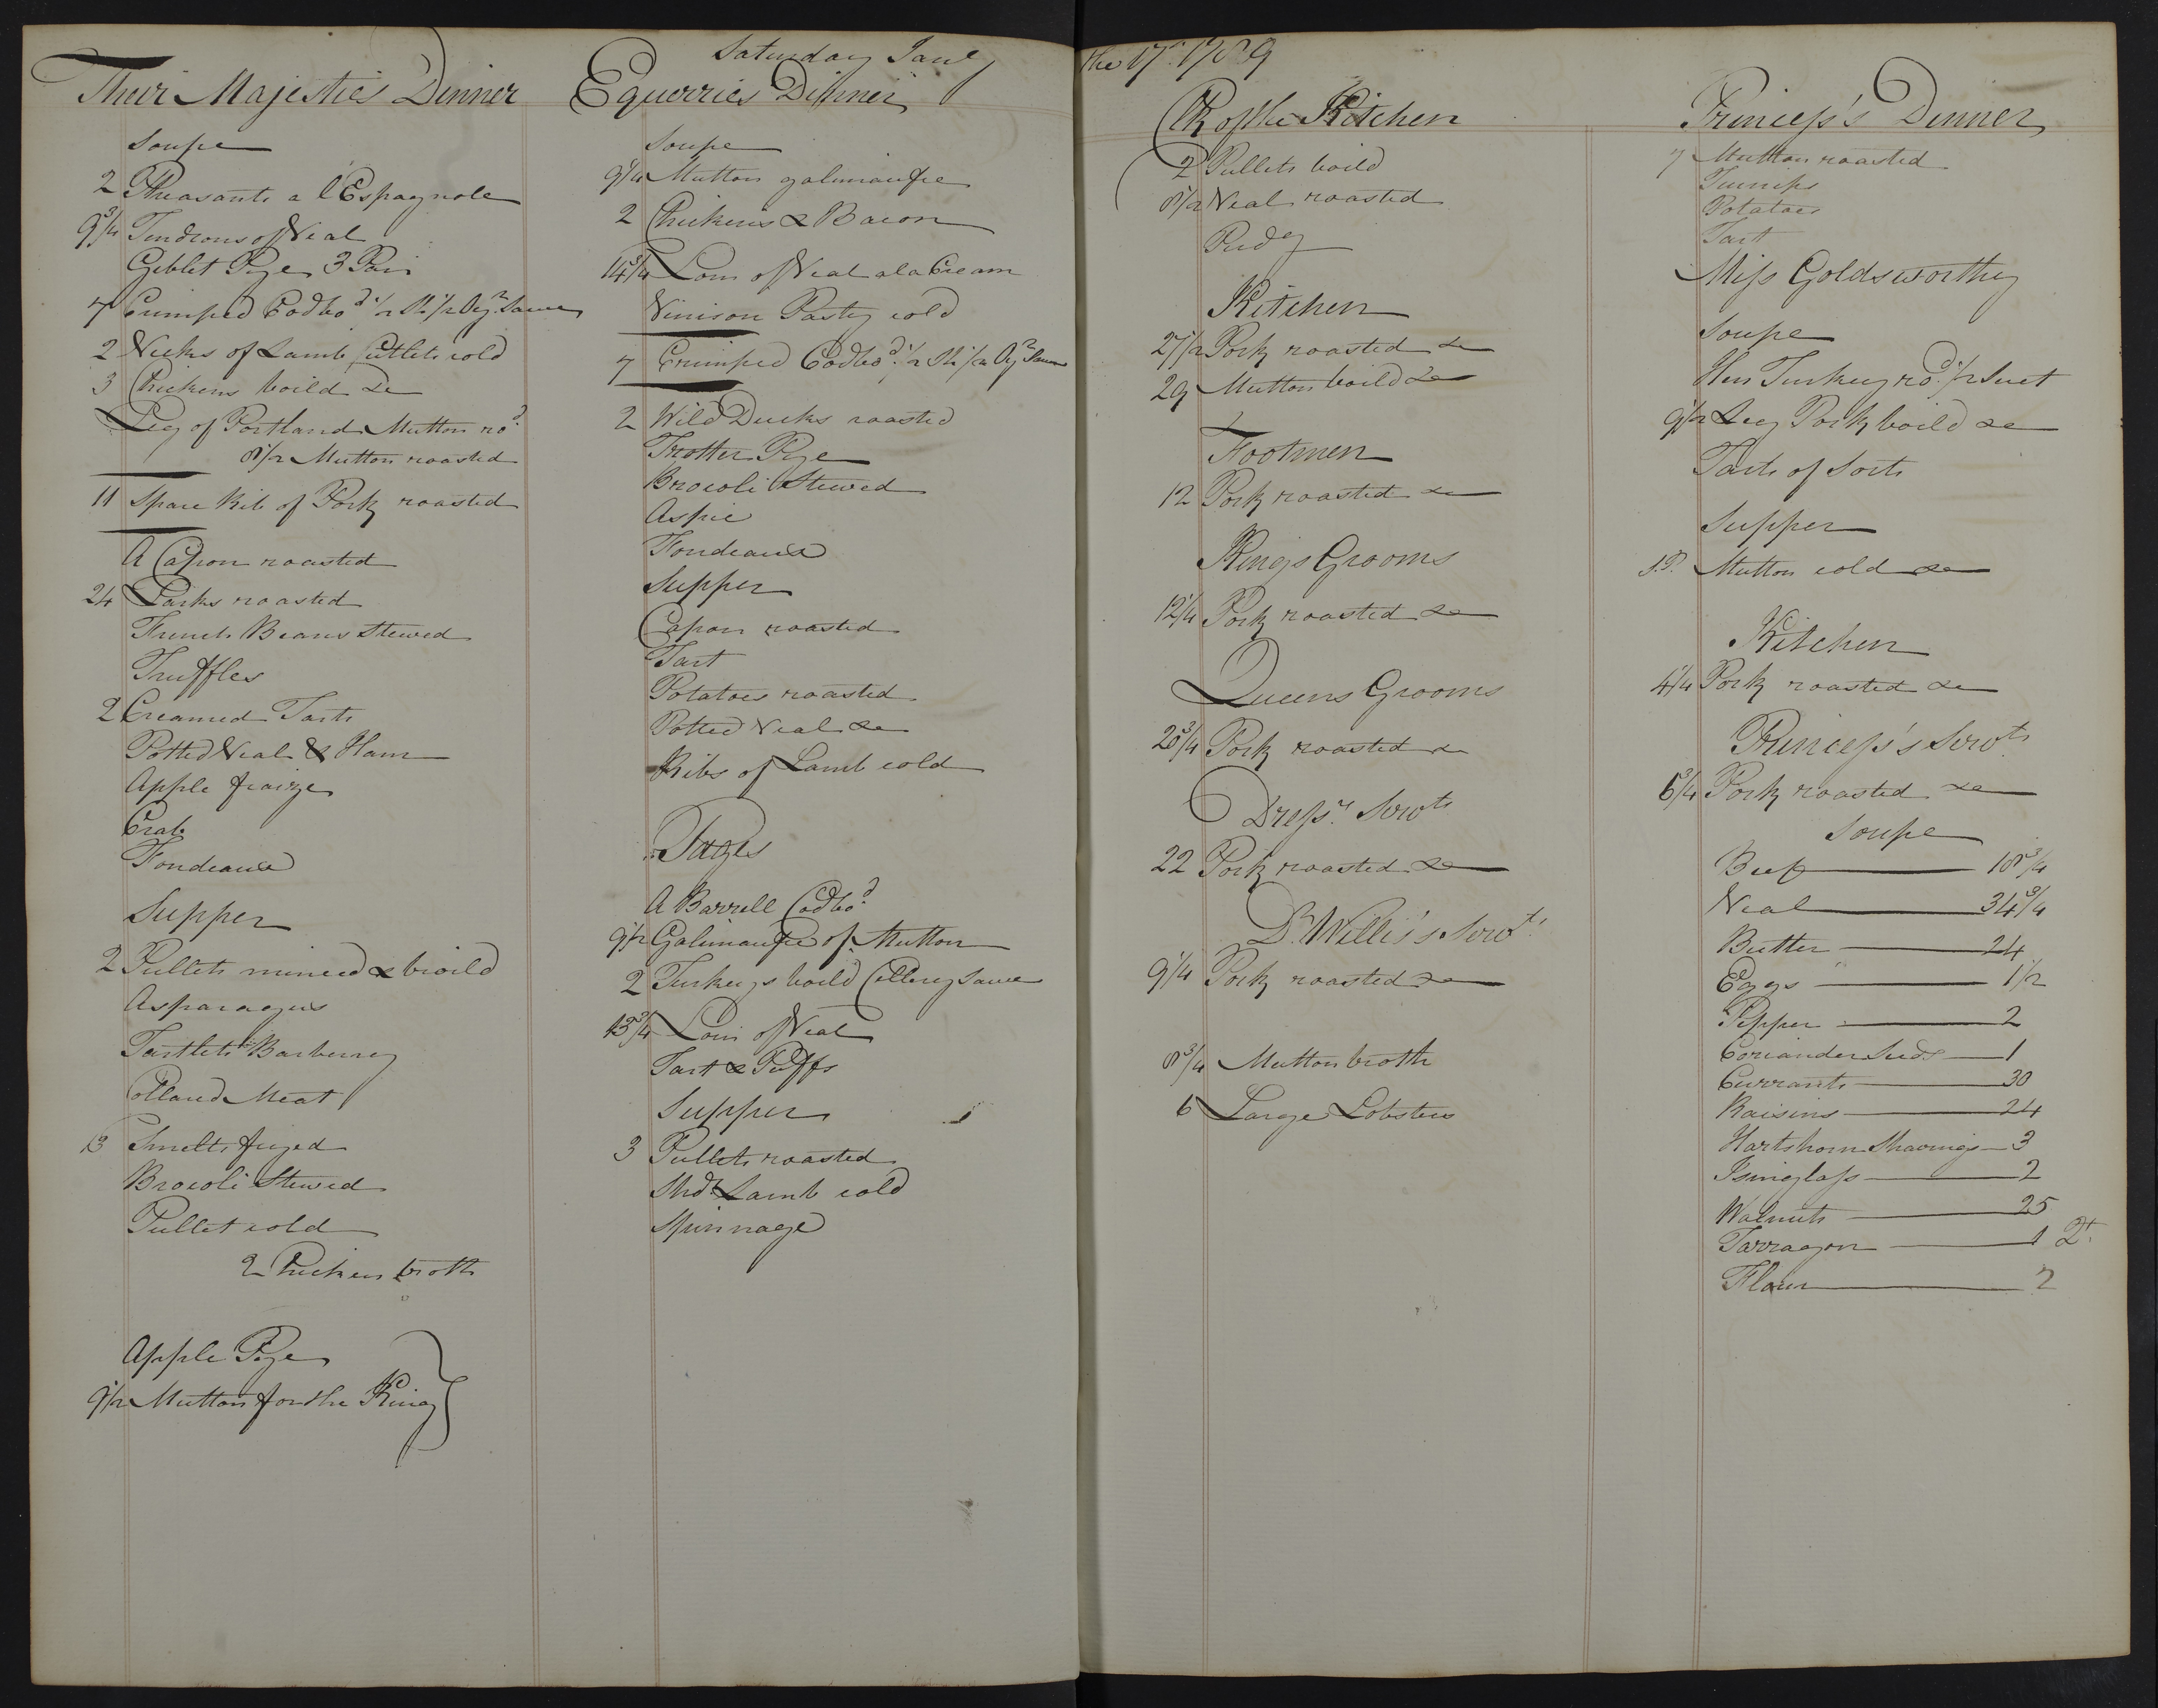 Saturday Jany the 17th 1789
Their Majesties Dinner
Soupe
2 Pheasants a l'Espagnole
9 3/4 Tendrons of Veal
Giblet Pye 3 Pair
7 Crimped Cod bod 1/2 Sh 1/2 Oyr Sauce
2 Necks of Lamb Cutlets cold
3 Chickens boild &c
Leg of Portland Mutton rod
8 1/2 Mutton roasted
11 Spare Rib of Pork roasted
A Capon roasted
24 Larks roasted
French Beans Stewed
Truffles
2 Creamed Tarts
Potted Veal & Ham
Apple fraize
Crab
Fondeaux
Supper
2 Pullets minced & broild
Asparagus
Tartlets Barberrey
Collard Meat
13 Smelts fryed
Brocoli Stewed
Pullet cold
2 Chicken broth
Apple Pye
9 1/2 Mutton for the King
Equerries Dinner
Soupe
9 1/4 Mutton galimaufre
2 Chickens & Bacon
14 3/4 Loin of Veal a la Cream
Vinison Pasty cold
7 Crimped Cod bod 1/2 Sh 1/2 Oyr Sauce
2 Wild Ducks roasted
Trotter Pye
Brocoli Stewed
Aspic
Fondeaux
Supper
Capon roasted
Tart
Potatoes roasted
Potted Veal &c
Ribs of Lamb cold
Pages
A Barrell Cod bod
9 1/2 Galimaufre of Mutton
2 Turkeys boild Cellery Sauce
13 3/4 Loin of Veal
Tart & Puffs
Supper
3 Pullets roasted
Shdr Lamb cold
Spinnage
Ck of the Kitchen
2 Pullets boild
8 1/2 Veal roasted
Pudg
Kitchen
27 1/2 Pork roasted &c
29 Mutton boild &c
Footmen
12 Pork roasted &c
Kings Grooms
12 1/4 Pork roasted &c
Queens Grooms
20 3/4 Pork roasted &c
Dressrs Servts
22 Pork roasted &c
Dr Willis's Servts
9 1/4 Pork roasted &c
8 3/4 Mutton broth
6 Large Lobsters
Princess's Dinner
7 Mutton roasted
Turnips
Potatoes
Tart
Miss Goldsworthy
Soupe
Hen Turkey rod 1/2 Suet
9 1/2 Leg Pork boild &c
Tarts of Sorts
Supper
Mutton cold &c
Kitchen
4 1/4 Pork roasted &c
Princess's Servts
6 3/4 Pork roasted &c
Soupe
Beef 108 3/4
Veal 34 3/4
Butter 24
Eggs 1 1/2
Pepper 2
Coriander Seeds 1
Currants 30
Raisins 24
Hartshorn Shavings 3
Isinglass 2
Walnuts 25
Tarragon 1 Qt
Flour 2